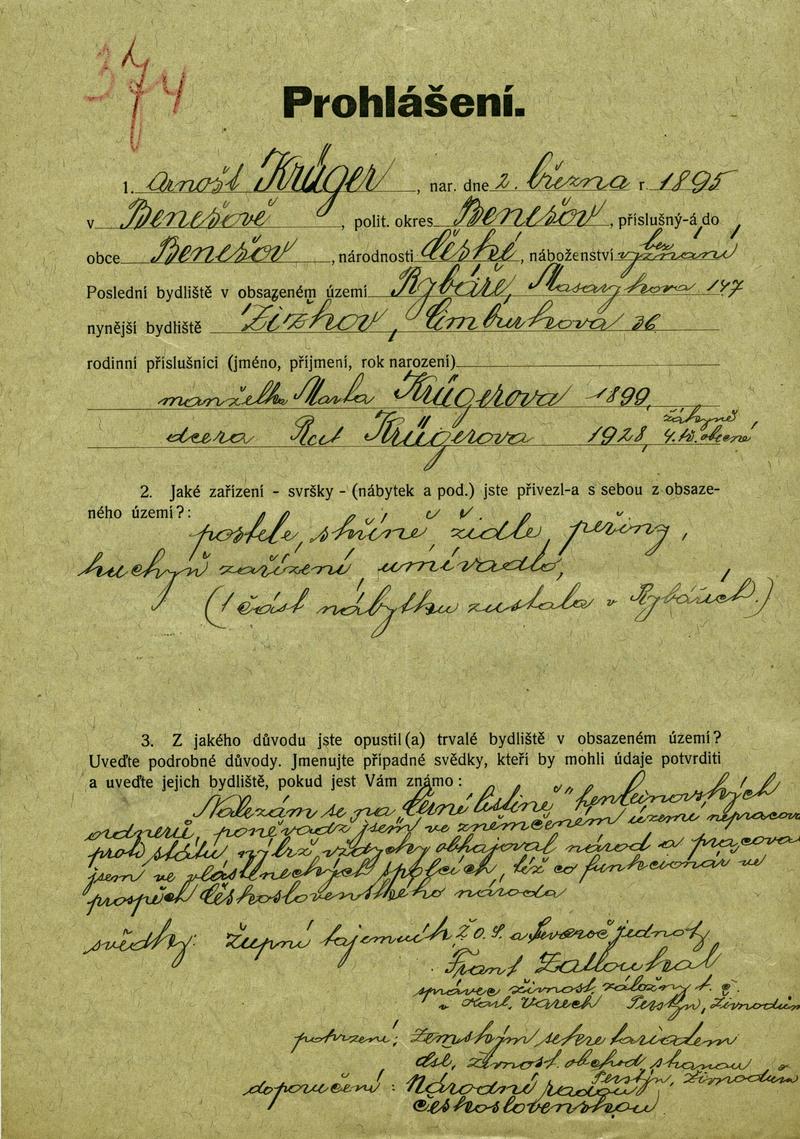 374
Prohlášení.
1. Arnošt Krüger, nar. dne 2. března r. 1895
v Benešově, polit. okres Benešov, příslušný-á do
obce Benešov, národnosti české, náboženství bez vyznání
Poslední bydliště v obsazeném území Rybáře, Masarykova 147
nynější bydliště Žižkov, Cimburkova 26
rodinní příslušníci (jméno, příjmení, rok narození)
manželka Marta Krügerova 1899,
dcera Rut Krügerova 1928, žákyně 4. tř. obecné
2. Jaké zařízení - svršky - (nábytek a pod.) jste přivezl-a s sebou z obsaze-
ného území?:
postele, skříně, židle, peřiny,
kuchyň zařízení, umývadlo,
(část nábytku zustala v Rybářích.)
3. Z jakého důvodu jste opustil(a) trvalé bydliště v obsazeném území?
Uveďte podrobné důvody. Jmenujte případné svědky, kteří by mohli údaje potvrditi
a uveďte jejich bydliště, pokud jest Vám známo:
Nalezám se na „černé listině" henleinovských
poněvadž jsem ve území
proti státu nýbrž vždycky obhajoval národ a pracoval
jsem ve spolcích, též co funkcionář ve
prospěch československého národa
svědky: župní tajemník jednoty
Frant. Zallouhal
správce živnost. záložny
potvrzení: Zemským
doporučení: Národní radou
československou